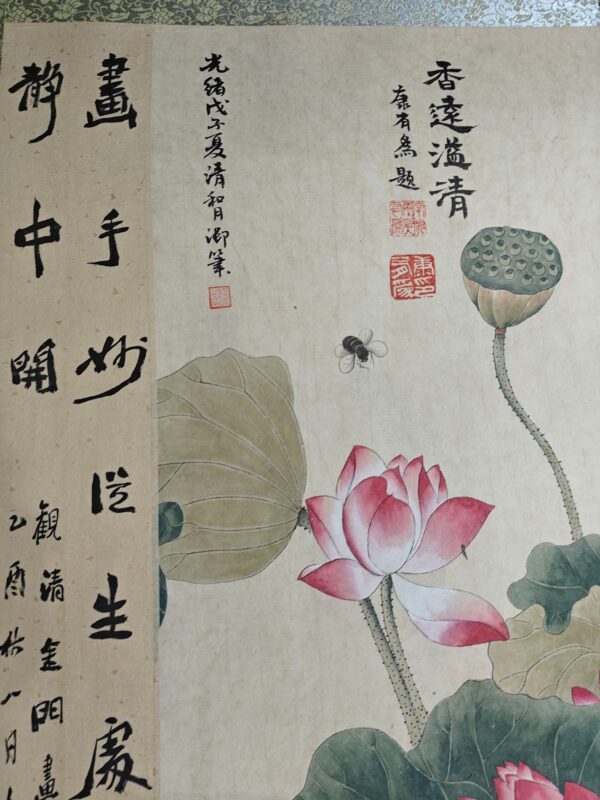 香遠溢清
康有為題
光緒戊子夏清和月御筆
畫手妙從生處
靜中開
觀清金門畫
乙酉秋八月